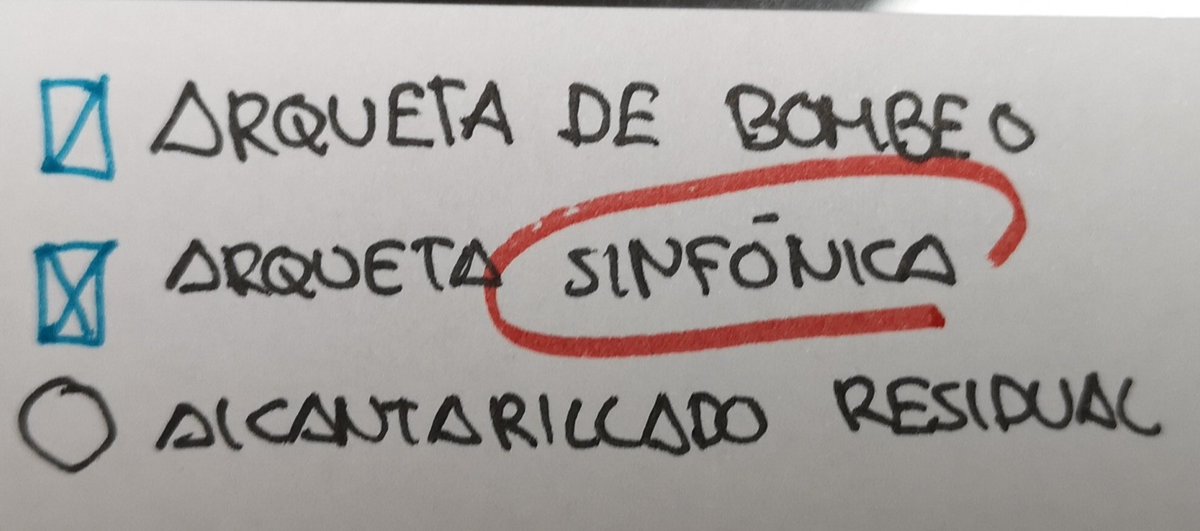 ARQUETA DE BOMBEO
ARQUETA SINFÓNICA
ALCANTARILLADO RESIDUAL